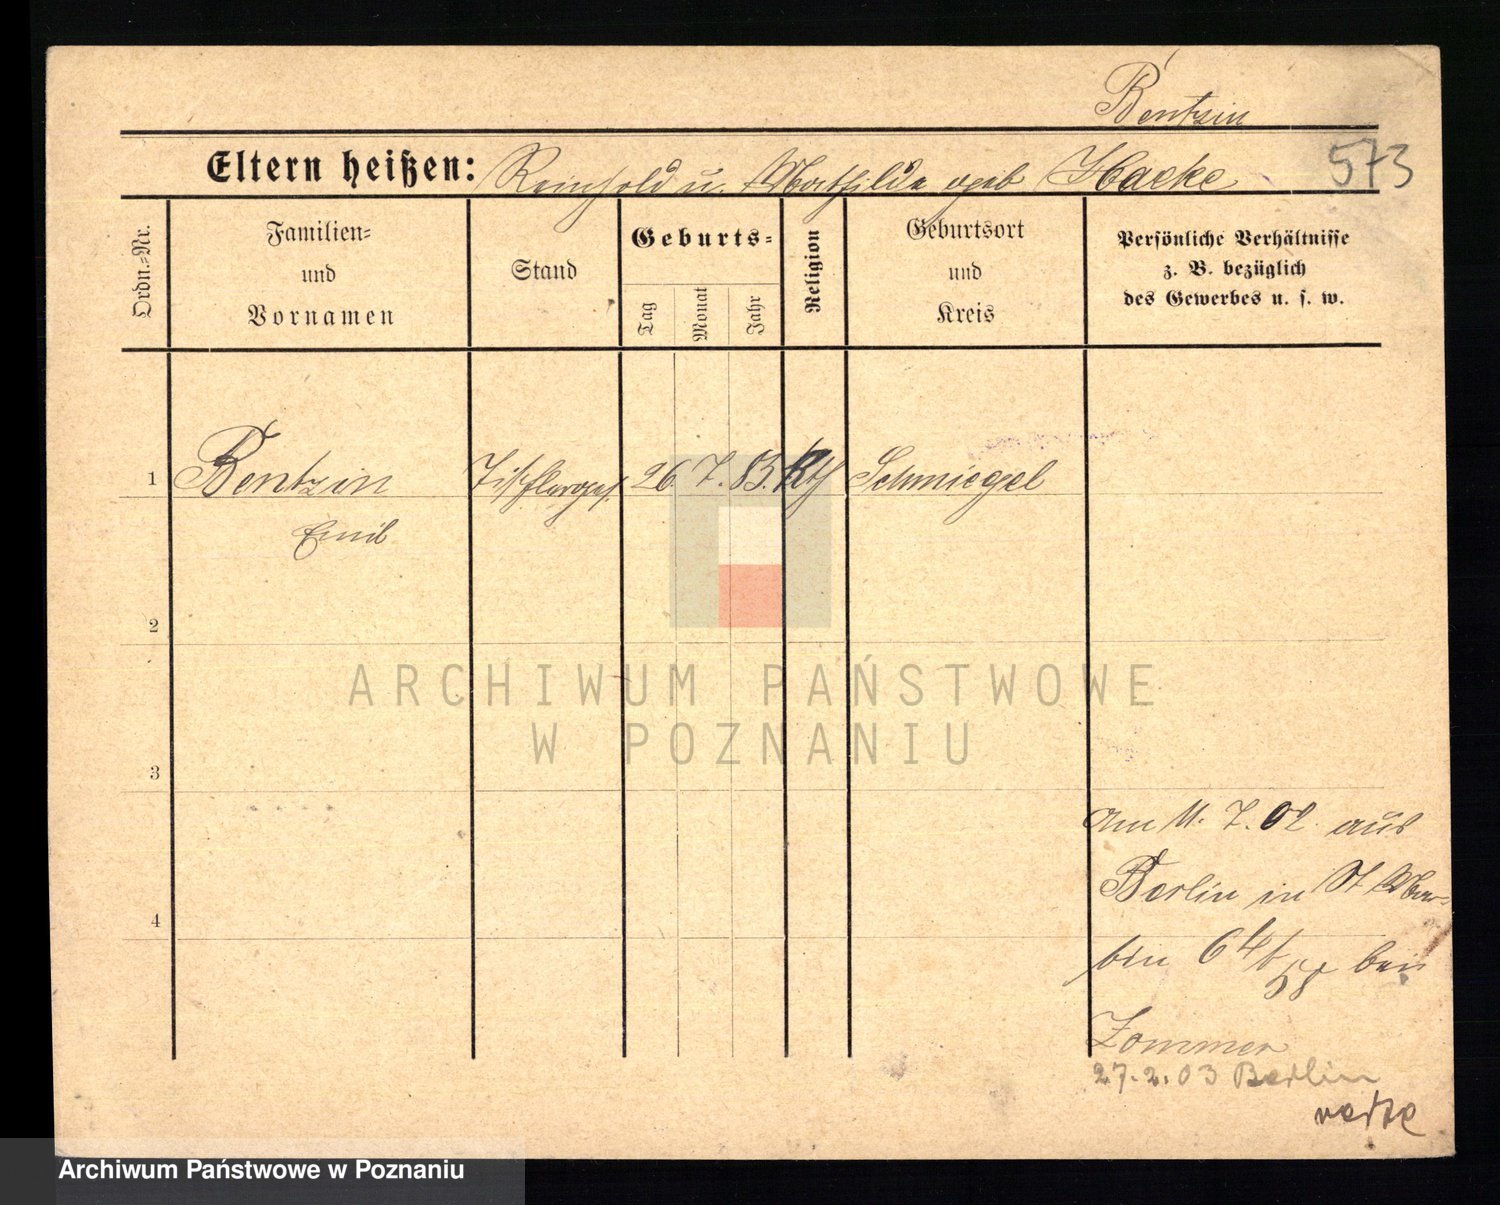 Bentzin
Eltern heißen: Reinhold u. Mathilde geb Hacke 573
Ordn.-Nr.
Familien-
und
Vornamen
Stand
Geburts-
Tag
Monat
Jahr
Religion
Geburtsort
und
Kreis
Persönliche Verhältnisse
z. B. bezüglich
des Gewerbes u. s. w.
1 Bentzin Tischlerges. 26. 7. 83. Kth Schmiegel
Emil
2
ARCHIWUM PAŃSTWOWE
W POZNANIU
3
am 11. 7. 02. aus
Berlin in St
4
64/58 bei
Zommer
27.2.03 Berlin
Archiwum Państwowe w Poznaniu